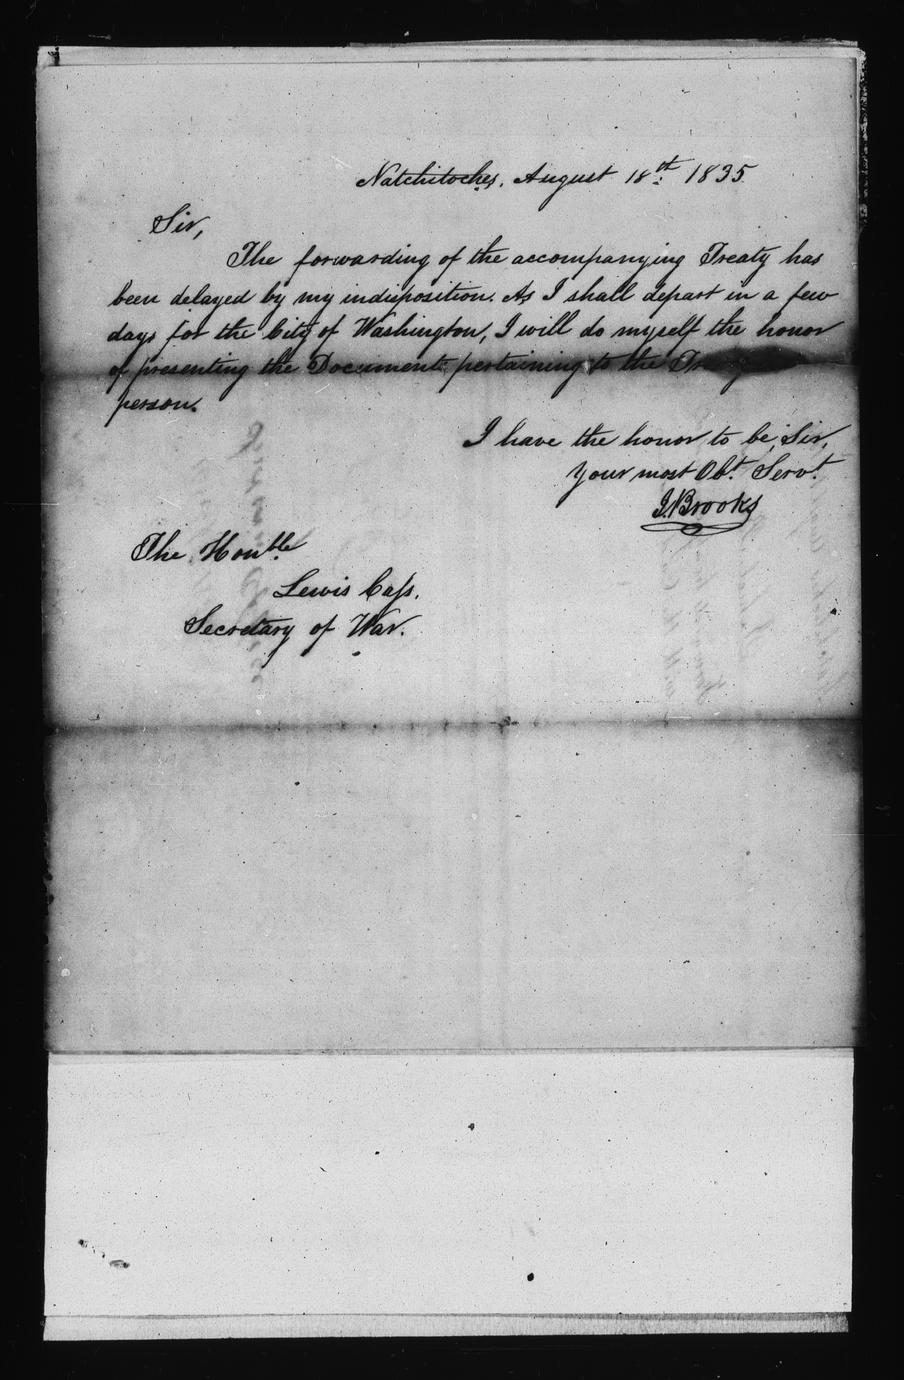 Natchitoches, August 18th. 1835
Sir,
The forwarding of the accompanying Treaty has
been delayed by my indisposition. As I shall depart in a few
days for the City of Washington, I will do myself the honor
of presenting the Documents pertaining to the
person.
I have the honor to be, Sir,
Your most Obt. Servt
J. Brooks
The Honble.
Lewis Cass.
Secretary of War.